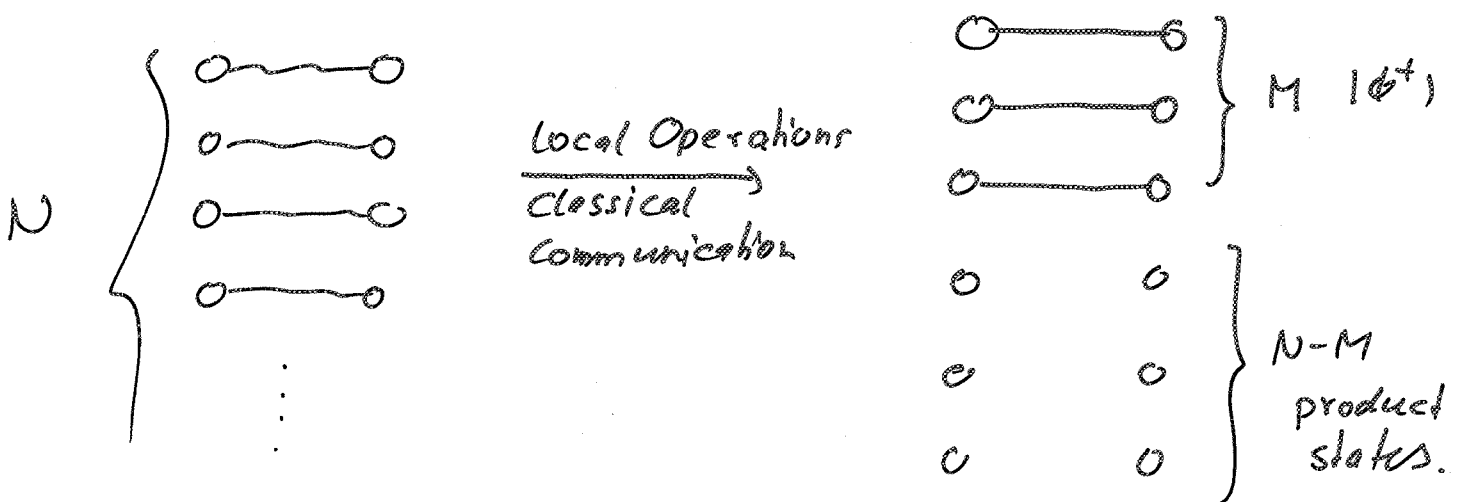 N
Local Operations
Classical
Communication
M |ϕ⁺⟩
N-M
product
states.